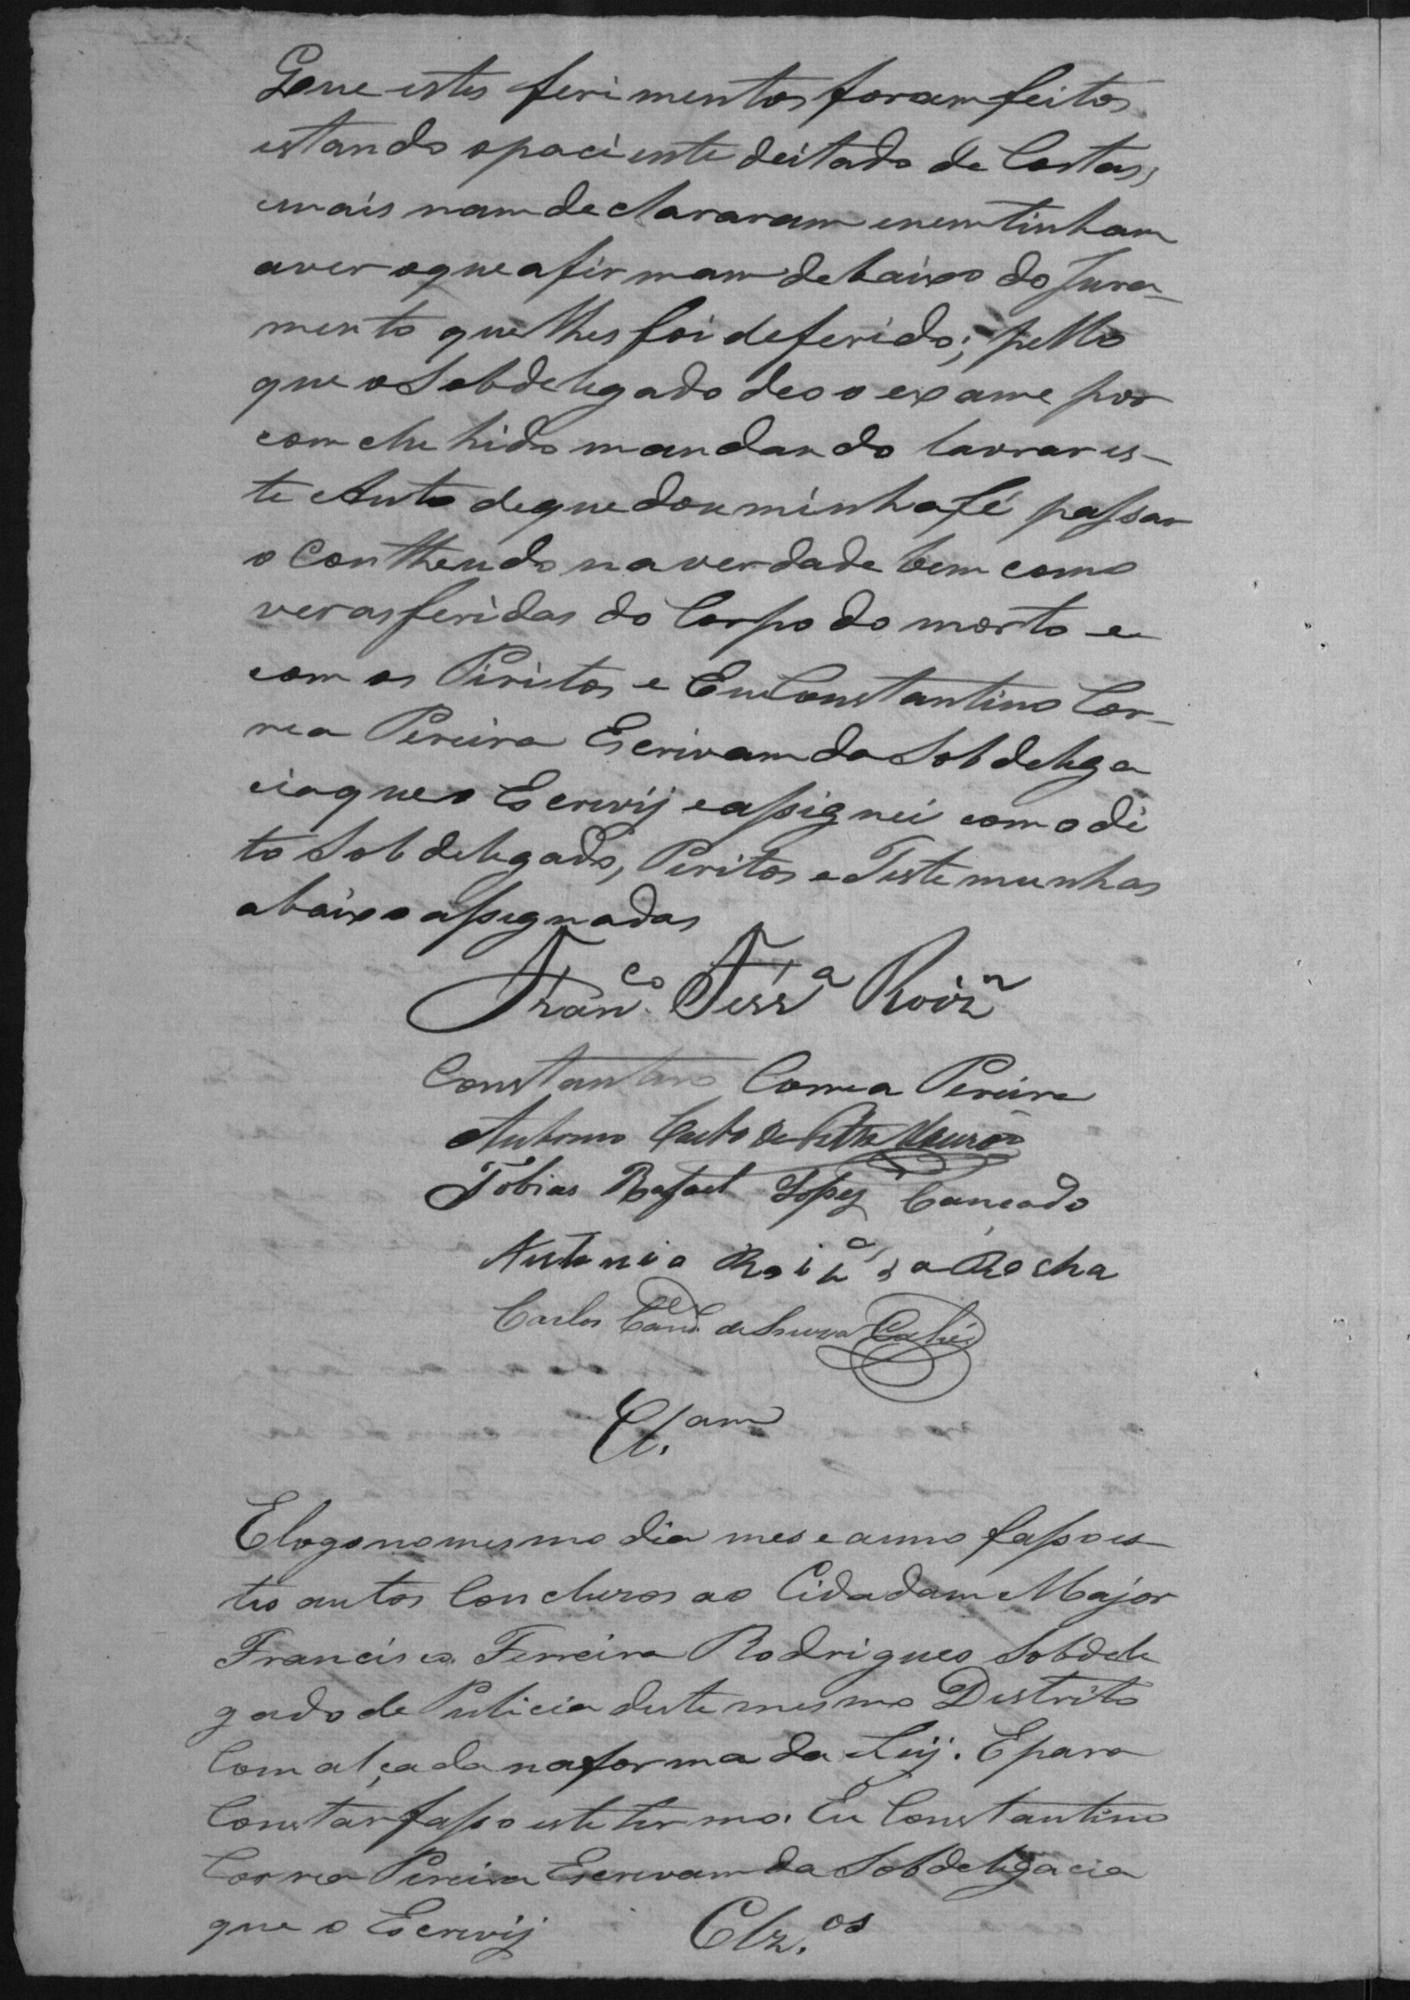 Que estes ferimentos foram feitos
estando o paciente deitado de Costas,
e mais nam declararam e nem tinham
a ver o que afirmam debaixo do Jura-
mento que lhes foi deferido; pello
que o Sobdelegado deo o exame por
comcluhido mandando lavrar es-
te Auto de que dou minha fé passar
o Contheudo na verdade bem como
ver as feridas do Corpo do morto e
com os Piritos e Eu Constantino Cor-
rea Pereira Escrivam da Sobdelega
cia que o Escrevij e assignei com o di
to Sobdelegado, Peritos e Testemunhas
abaixo assignadas
Fran.co Ferr.a Roiz
Constantino Correa Pereira
Antonio
Tobias Rafael Lopez Cançado
Antonio da Rocha
Carlos Cand. de Souza
Cl.am
E logo no mesmo dia mes e anno fasso es
tes autos Concluzos ao Cidadam Major
Francisco Ferreira Rodrigues Sobdele
gado de Pulicia deste mesmo Destrito
Com alçada na forma da Leij. E para
Constar fasso este termo. Eu Constantino
Correa Pereira Escrevam da Sobdeligacia
que o Escrevij Clz.os